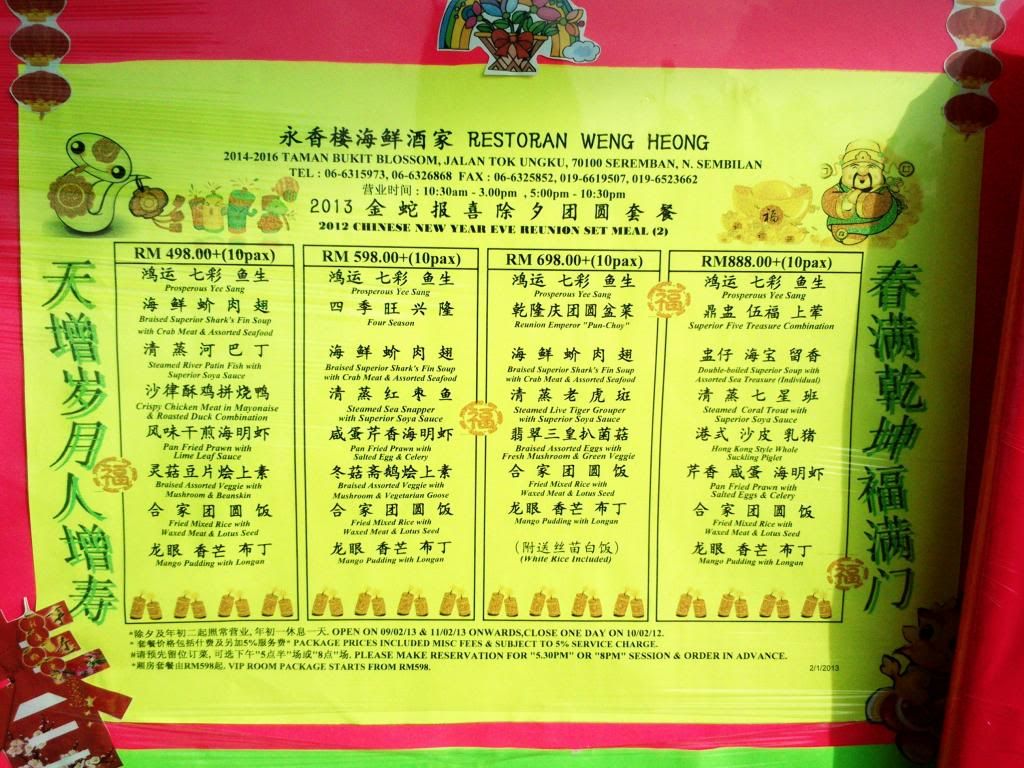 永香楼海鲜酒家 RESTORAN WENG HEONG
2014-2016 TAMAN BUKIT BLOSSOM, JALAN TOK UNGKU, 70100 SEREMBAN, N. SEMBILAN
TEL : 06-6315973, 06-6326868 FAX : 06-6325852, 019-6619507, 019-6523662
营业时间 : 10:30am - 3.00pm , 5:00pm - 10:30pm
2013 金蛇报喜除夕团圆套餐
2012 CHINESE NEW YEAR EVE REUNION SET MEAL (2)
天增岁月人增寿
RM 498.00+(10pax)
鸿运 七彩 鱼生
Prosperous Yee Sang
海鲜蚧肉翅
Braised Superior Shark's Fin Soup
with Crab Meat & Assorted Seafood
清蒸河巴丁
Steamed River Patin Fish with
Superior Soya Sauce
沙律酥鸡拼烧鸭
Crispy Chicken Meat in Mayonaise
& Roasted Duck Combination
风味干煎海明虾
Pan Fried Prawn with
Lime Leaf Sauce
灵菇豆片烩上素
Braised Assorted Veggie with
Mushroom & Beanskin
合家团圆饭
Fried Mixed Rice with
Waxed Meat & Lotus Seed
龙眼 香芒 布丁
Mango Pudding with Longan
RM 598.00+(10pax)
鸿运 七彩 鱼生
Prosperous Yee Sang
四季旺兴隆
Four Season
海鲜蚧肉翅
Braised Superior Shark's Fin Soup
with Crab Meat & Assorted Seafood
清蒸红枣鱼
Steamed Sea Snapper
with Superior Soya Sauce
咸蛋芹香海明虾
Pan Fried Prawn with
Salted Egg & Celery
冬菇斋鹅烩上素
Braised Assorted Veggie with
Mushroom & Vegetarian Goose
合家团圆饭
Fried Mixed Rice with
Waxed Meat & Lotus Seed
龙眼 香芒 布丁
Mango Pudding with Longan
RM 698.00+(10pax)
鸿运 七彩 鱼生
Prosperous Yee Sang
乾隆庆团圆盆菜
Reunion Emperor "Pun-Choy"
海鲜蚧肉翅
Braised Superior Shark's Fin Soup
with Crab Meat & Assorted Seafood
清蒸老虎斑
Steamed Live Tiger Grouper
with Superior Soya Sauce
翡翠三皇扒菌菇
Braised Assorted Eggs with
Fresh Mushroom & Green Veggie
合家团圆饭
Fried Mixed Rice with
Waxed Meat & Lotus Seed
龙眼 香芒 布丁
Mango Pudding with Longan
(附送丝苗白饭)
(White Rice Included)
RM888.00+(10pax)
鸿运 七彩 鱼生
Prosperous Yee Sang
鼎盅 伍福 上荤
Superior Five Treasure Combination
盅仔 海宝 留香
Double-boiled Superior Soup with
Assorted Sea Treasure (Individual)
清蒸七星班
Steamed Coral Trout with
Superior Soya Sauce
港式 沙皮 乳猪
Hong Kong Style Whole
Suckling Piglet
芹香 咸蛋 海明虾
Pan Fried Prawn with
Salted Eggs & Celery
合家团圆饭
Fried Mixed Rice with
Waxed Meat & Lotus Seed
龙眼 香芒 布丁
Mango Pudding with Longan
春满乾坤福满门
福
福
福
福
福
*除夕及年初二起照常营业, 年初一休息一天. OPEN ON 09/02/13 & 11/02/13 ONWARDS,CLOSE ONE DAY ON 10/02/12.
* 套餐价格包括什费及另加5%服务费* PACKAGE PRICES INCLUDED MISC FEES & SUBJECT TO 5% SERVICE CHARGE.
#请预先留位订菜, 可选下午"5点半"场或"8点"场. PLEASE MAKE RESERVATION FOR "5.30PM" OR "8PM" SESSION & ORDER IN ADVANCE.
*厢房套餐由RM598起. VIP ROOM PACKAGE STARTS FROM RM598.
2/1/2013